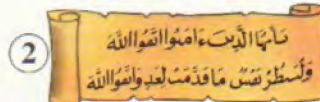 2
يَٰٓأَيُّهَا الَّذِينَ ءَامَنُوا اتَّقُوا اللَّهَ
وَلْتَنظُرْ نَفْسٌ مَّا قَدَّمَتْ لِغَدٍ وَاتَّقُوا اللَّهَ